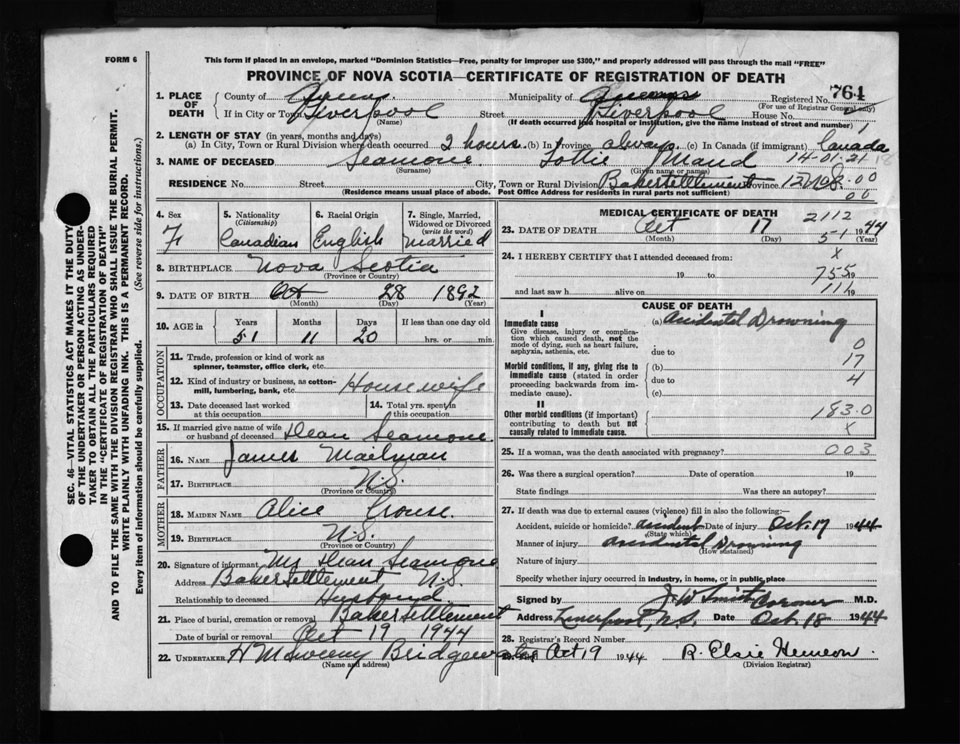 FORM 6
This form if placed in an envelope, marked "Dominion Statistics—Free, penalty for improper use $300," and properly addressed will pass through the mail "FREE"
PROVINCE OF NOVA SCOTIA—CERTIFICATE OF REGISTRATION OF DEATH
SEC. 46—VITAL STATISTICS ACT MAKES IT THE DUTY
OF THE UNDERTAKER OR PERSON ACTING AS UNDER-
TAKER TO OBTAIN ALL THE PARTICULARS REQUIRED
IN THE "CERTIFICATE OF REGISTRATION OF DEATH"
AND TO FILE THE SAME WITH THE DIVISION REGISTRAR WHO SHALL ISSUE THE BURIAL PERMIT.
WRITE PLAINLY WITH UNFADING INK. THIS IS A PERMANENT RECORD.
Every item of information should be carefully supplied. (See reverse side for instructions.)
1. PLACE OF DEATH County of Queens Municipality of Queens Registered No. 761
(For use of Registrar General only)
If in City or Town Liverpool Street Liverpool House No.
(Name) (If death occurred in a hospital or institution, give the name instead of street and number) 1
2. LENGTH OF STAY (in years, months and days)
(a) In City, Town or Rural Division where death occurred 2 hours. (b) In Province always. (c) In Canada (if immigrant) Canada
3. NAME OF DECEASED Seamone Lottie Maud 14-01-21 18
(Surname) (Given name or names)
RESIDENCE No. Street City, Town or Rural Division Baker Settlement Province N.S. 12 00
(Residence means usual place of abode. Post Office Address for residents in rural parts not sufficient) 00
4. Sex F
5. Nationality (Citizenship) Canadian
6. Racial Origin English
7. Single, Married, Widowed or Divorced (write the word) Married
8. BIRTHPLACE Nova Scotia
(Province or Country)
9. DATE OF BIRTH Oct 28 1892
(Month) (Day) (Year)
10. AGE in Years 51 Months 11 Days 20 If less than one day old hrs. or min.
OCCUPATION
11. Trade, profession or kind of work as spinner, teamster, office clerk, etc.
12. Kind of industry or business, as cotton-mill, lumbering, bank, etc. Housewife
13. Date deceased last worked at this occupation
14. Total yrs. spent in this occupation
15. If married give name of wife or husband of deceased Dean Seamone
FATHER
16. NAME James Mailman
17. BIRTHPLACE N.S.
(Province or Country)
MOTHER
18. MAIDEN NAME Alice Crouse.
19. BIRTHPLACE N.S.
(Province or Country)
20. Signature of informant Mr Dean Seamone
Address Baker Settlement N.S.
Relationship to deceased Husband
21. Place of burial, cremation or removal Baker Settlement
Date of burial or removal Oct 19 1944
22. UNDERTAKER H McSweeny Bridgewater
(Name and address)
MEDICAL CERTIFICATE OF DEATH 2112
23. DATE OF DEATH Oct 17 1944
(Month) (Day) 51 (Year)
24. I HEREBY CERTIFY that I attended deceased from: X
19 to 755 19
and last saw h alive on 111 19
CAUSE OF DEATH
I
Immediate cause (a) Accidental Drowning
Give disease, injury or complication which caused death, not the mode of dying, such as heart failure, asphyxia, asthenia, etc. due to 0
Morbid conditions, if any, giving rise to immediate cause (stated in order proceeding backwards from immediate cause). (b) 17
due to 4
(c)
II
Other morbid conditions (if important) contributing to death but not causally related to immediate cause. 183.0
X
25. If a woman, was the death associated with pregnancy? 003
26. Was there a surgical operation? Date of operation 19
State findings Was there an autopsy?
27. If death was due to external causes (violence) fill in also the following:
Accident, suicide or homicide? accident Date of injury Oct. 17 1944
(State which)
Manner of injury Accidental Drowning
(How sustained)
Nature of injury
Specify whether injury occurred in industry, in home, or in public place
Signed by J. W. Smith Coroner M.D.
Address Liverpool, N.S. Date Oct. 18 1944
28. Registrar's Record Number
Oct 19 1944 R. Elsie Hemeon.
(Division Registrar)